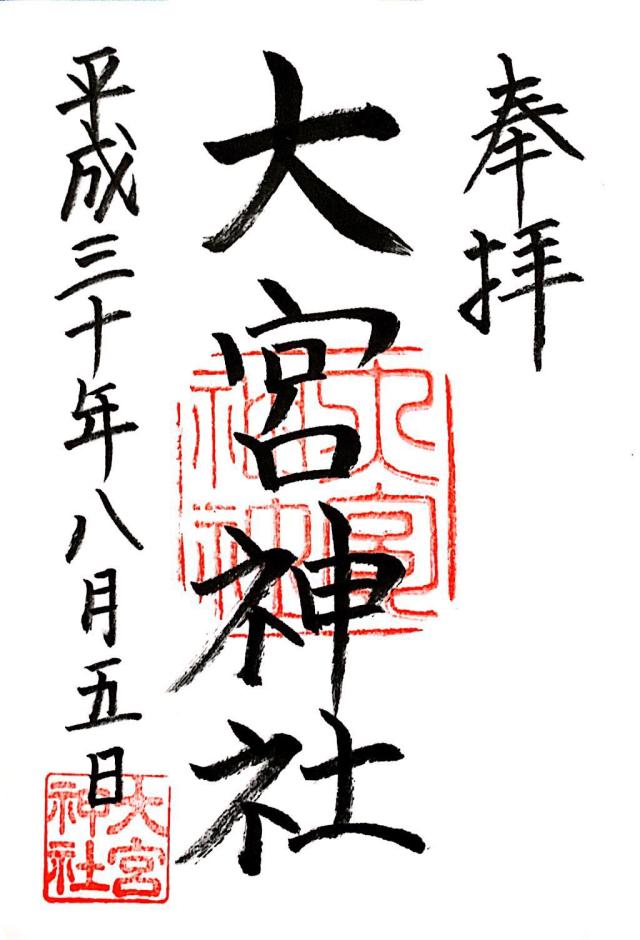 奉拝
大宮神社
大宮神社
平成三十年八月五日
大宮神社